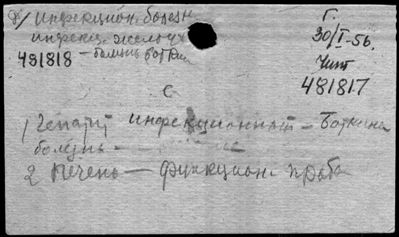 д/ инфекцион. болезн
инфекц. желтух
481818 – болезнь Боткин
Г.
30/I-56.
Чит
481817
С
1) Гепатит инфекционный – Боткина
болезнь –
2 Печень – функцион. проба